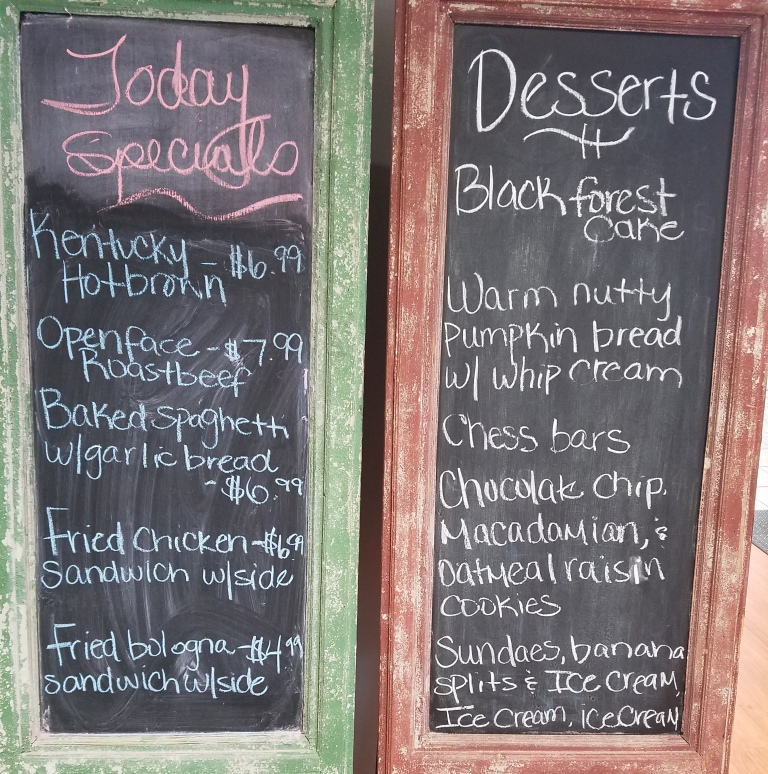 Today
Specials
Kentucky - $6.99
Hotbrown
Openface - $7.99
Roastbeef
Baked spaghetti
w/garlic bread
- $6.99
Fried Chicken - $6.99
Sandwich w/side
Fried bologna - $4.99
sandwich w/side
Desserts
Black forest
Cake
Warm nutty
pumpkin bread
w/ whip cream
Chess bars
Chocolate chip.
Macadamian, &
Oatmeal raisin
cookies
Sundaes, banana
splits & Ice Cream,
Ice Cream, ice Cream